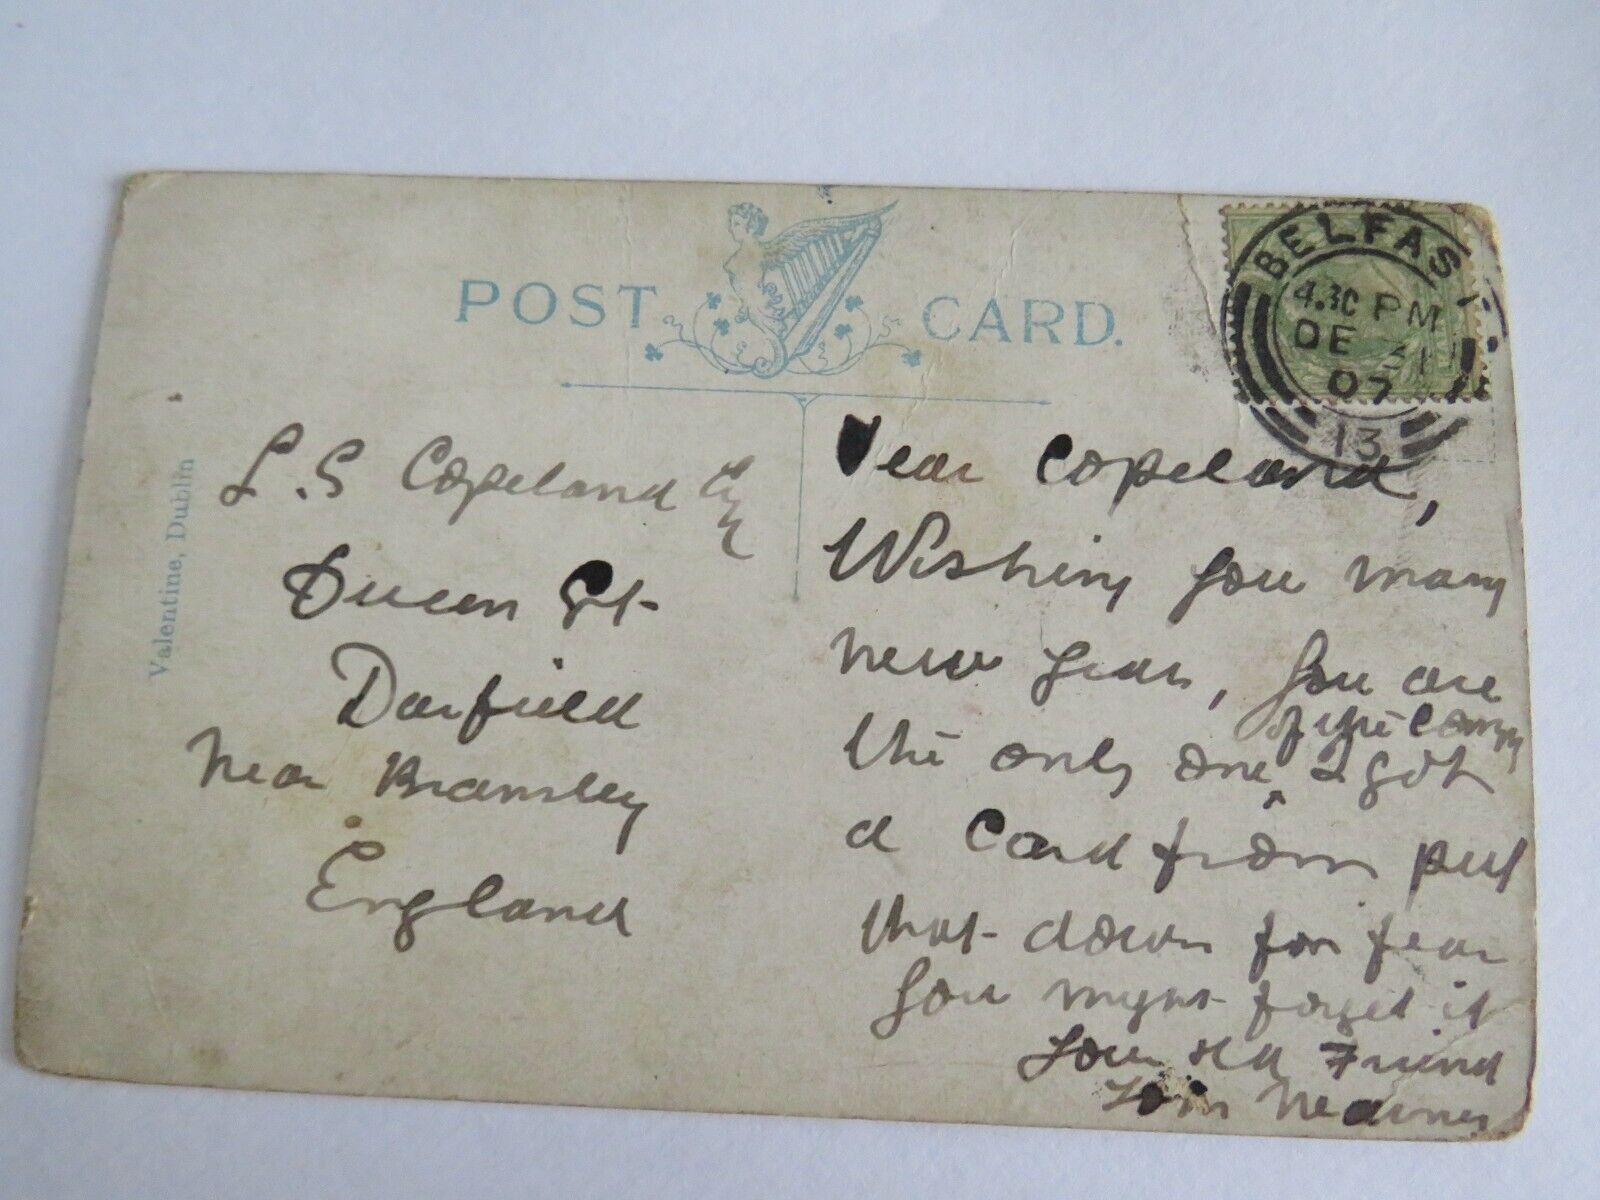 POST CARD.
BELFAST
4.30 PM
DE 31
07
13
Valentine, Dublin
L. S Copeland Esq
Queen St-
Darfield
Near Barnsley
England
Dear Copeland,
Wishing you many
new years, you are
the only one of the Compy I got
a Card from put
that down for fear
you might forget it
Your old Friend